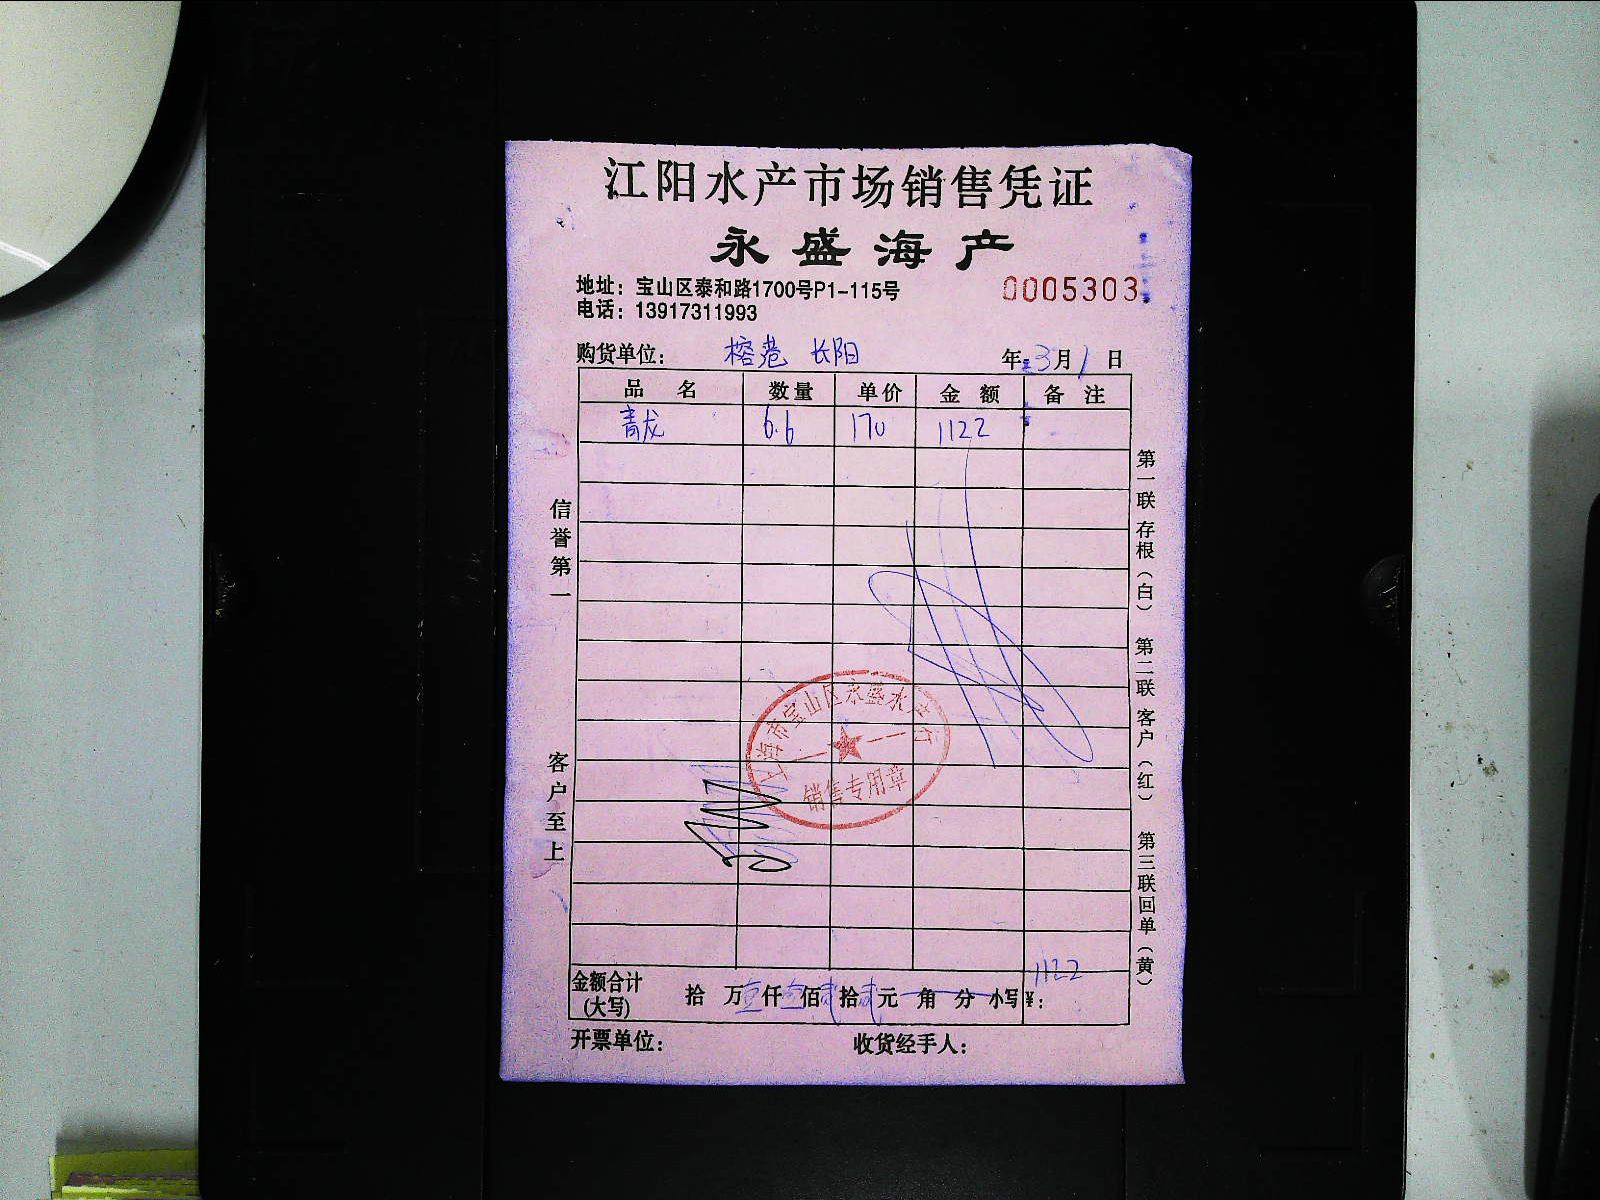 江阳水产市场销售凭证
永盛海产
地址：宝山区泰和路1700号P1-115号
0005303
电话：13917311993
购货单位：榕巷 长阳 年 3月1日
品名 数量 单价 金额 备注
青龙 6.6 170 1122
信誉第一
客户至上
第一联存根（白） 第二联客户（红） 第三联回单（黄）
上海市宝山区永盛水产行
销售专用章
金额合计 拾 万壹仟壹佰贰拾贰元 角 分 小写¥：1122
(大写)
开票单位： 收货经手人：